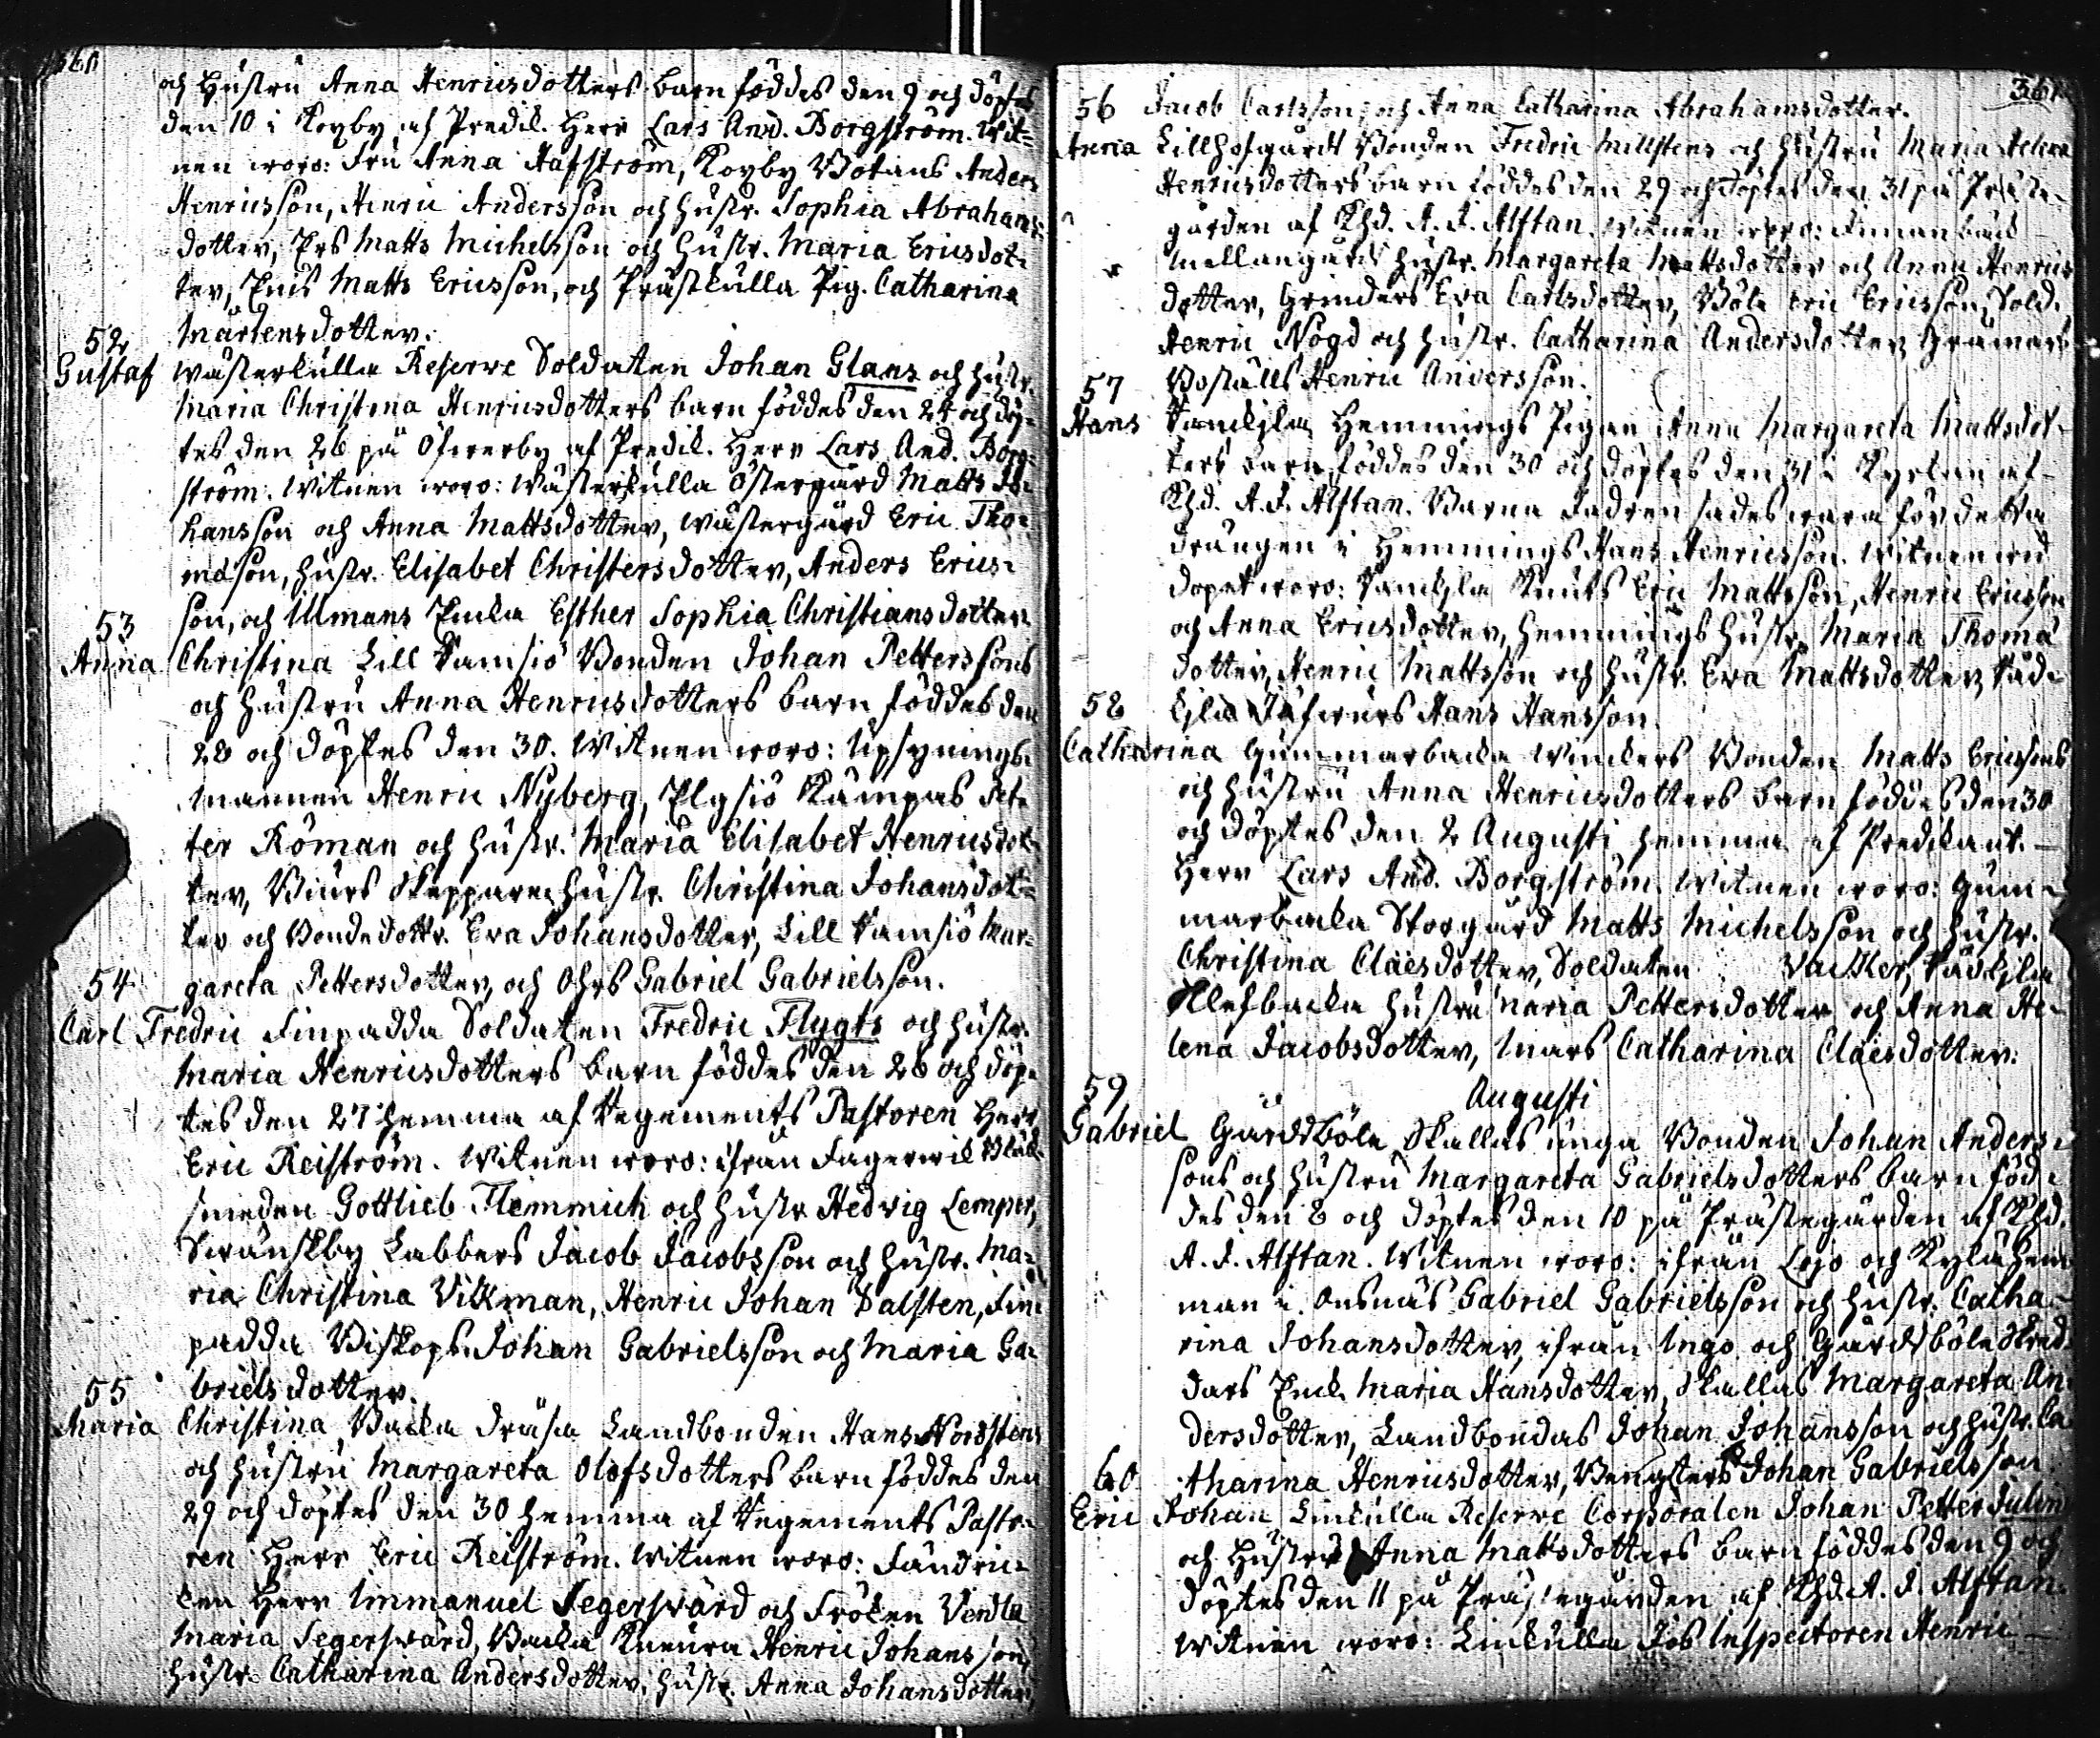 360
och Hustru Anna Henricsdotters barn föddes den 9 och döptes
den 10 i Koyby af Predik. Herr Lars And. Borgström. Wit-
nen woro: Fru Anna Hafström, Koyby Botans Anders
Henricsson, Henric Andersson och hustr. Sophia Abrahams-
dotter, Ers Matts Michelsson och hustr. Maria Ericsdot-
ter, Matts Ericsson, och Prästkulla Pig. Catharina
Mårtensdotter.
52
Gustaf Wästerkulla Reserve Soldaten Johan Glans och hustr.
Maria Christina Henricsdotters barn föddes den 24 och döp-
tes den 26 på Öfwerby af Predik. Herr Lars And. Borg-
ström. Witnen woro: Wästerkulla Östergård Matts Jo-
hansson och Anna Mattsdotter, Wästergård Eric Tho-
masson, hustr. Elisabet Christersdotter, Anders Erics-
son, och Ulmans Enka Esther Sophia Christiansdotter.
53
Anna Christina Lill Ramsiö Bonden Johan Petterssons
och hustru Anna Henricsdotters barn föddes den
28 och döptes den 30. Witnen woro: Upsynings-
mannen Henric Nyberg, Elgsiö Kämpas Pet-
ter Röman och hustr. Maria Elisabet Henricsdot-
ter, Skepparen hustr. Christina Johansdot-
ter och Bondedottr. Eva Johansdotter, Lill Ramsiö Mar-
gareta Pettersdotter, och Ohrs Gabriel Gabrielsson.
54
Carl Fredric Finpadda Soldaten Fredric Flygts och hustr.
Maria Henricsdotters barn föddes den 26 och döp-
tes den 27 hemma af Regements Pastoren Herr
Eric Reiström. Witnen woro: ifrån Fagerwik
smeden Gottlieb Flemmich och hustr. Hedvig Lemper,
Swänskby Labbers Jacob Jacobsson och hustr. Ma-
ria Christina Vikman, Henric Johan Dalsten, Fin-
padda Biskops Johan Gabrielsson och Maria Ga-
brielsdotter.
55
Maria Christina Backa Landbonden Hans Nordstens
och hustru Margareta Olofsdotters barn föddes den
29 och döptes den 30 hemma af Regements Pasto-
ren Herr Eric Reiström. Witnen woro: Fändric-
ken Herr Immanuel Segersvärd och Fröken Vendla
Maria Segersvärd, Backa Henric Johansson,
hustr. Catharina Andersdotter, hustr. Anna Johansdotter,
361
56 Jacob Carlsson, och Anna Catharina Abrahamsdotter.
Anna Lillhofgårdt Bonden Fredric Millstens och hustru Maria Helena
Henricsdotters barn föddes den 29 och döptes den 31 på Präste-
gården af Khd. A. J. Alftan. Witnen woro: Finnanbäck
Mellangårds hustr. Margareta Mattsdotter och Anna Henrics
dotter, Grinders Eva Carlsdotter, Böle Eric Ericsson, Sold.
Henric Nögd och hustr. Catharina Andersdotter,
Boställs Henric Andersson.
57
Hans Hemmings Pigan Anna Margareta Mattsdot-
ters barn föddes den 30 och döptes den 31 i Kyrkan af
Khd. A. J. Alftan. Barna Fadren sades wara för detta
drängen i Hemmings Hans Henricsson. Witnen wid
dopet woro: Knuts Eric Mattsson, Henric Ericsson
och Anna Ericsdotter, Hemmings hustr. Maria Thomæ
dotter, Henric Mattsson och hustr. Eva Mattsdotter,
Hans Hansson.
58
Catharina Gummarbacka Winckers Bonden Matts Ericssons
och hustru Anna Henricsdotters barn föddes den 30
och döptes den 2 Augusti hemma af Predikant.
Herr Lars And. Borgström. Witnen woro: Gum-
marbacka Storgård Matts Michelsson och hustr.
Christina Claësdotter, Soldaten Vacker,
hustru Maria Pettersdotter och Anna He-
lena Jacobsdotter, Mars Catharina Claësdotter.
Augusti
59
Gabriel Gårdsböle Skallas unga Bonden Johan Anders-
sons och hustru Margareta Gabrielsdotters barn föd-
des den 8 och döptes den 10 på Prästegården af Khd.
A. J. Alftan. Witnen woro: ifrån Lojo och
man i Onsnäs Gabriel Gabrielsson och hustr. Catha-
rina Johansdotter, ifrån Ingo och Gårdsböle Skräd-
dars Enk. Maria Hansdotter, Skallas Margareta An-
dersdotter, Landbondas Johan Johansson och hustr. Ca
tharina Henricsdotter, Bengters Johan Gabrielsson.
60
Eric Johan Linkulla Reserve Corporalen Johan Petter Julin
och hustru Anna Mattsdotters barn föddes den 9 och
döptes den 11 på Prästegården af Khd. A. J. Alftan.
Witnen woro: Linkulla Inspectoren Henric